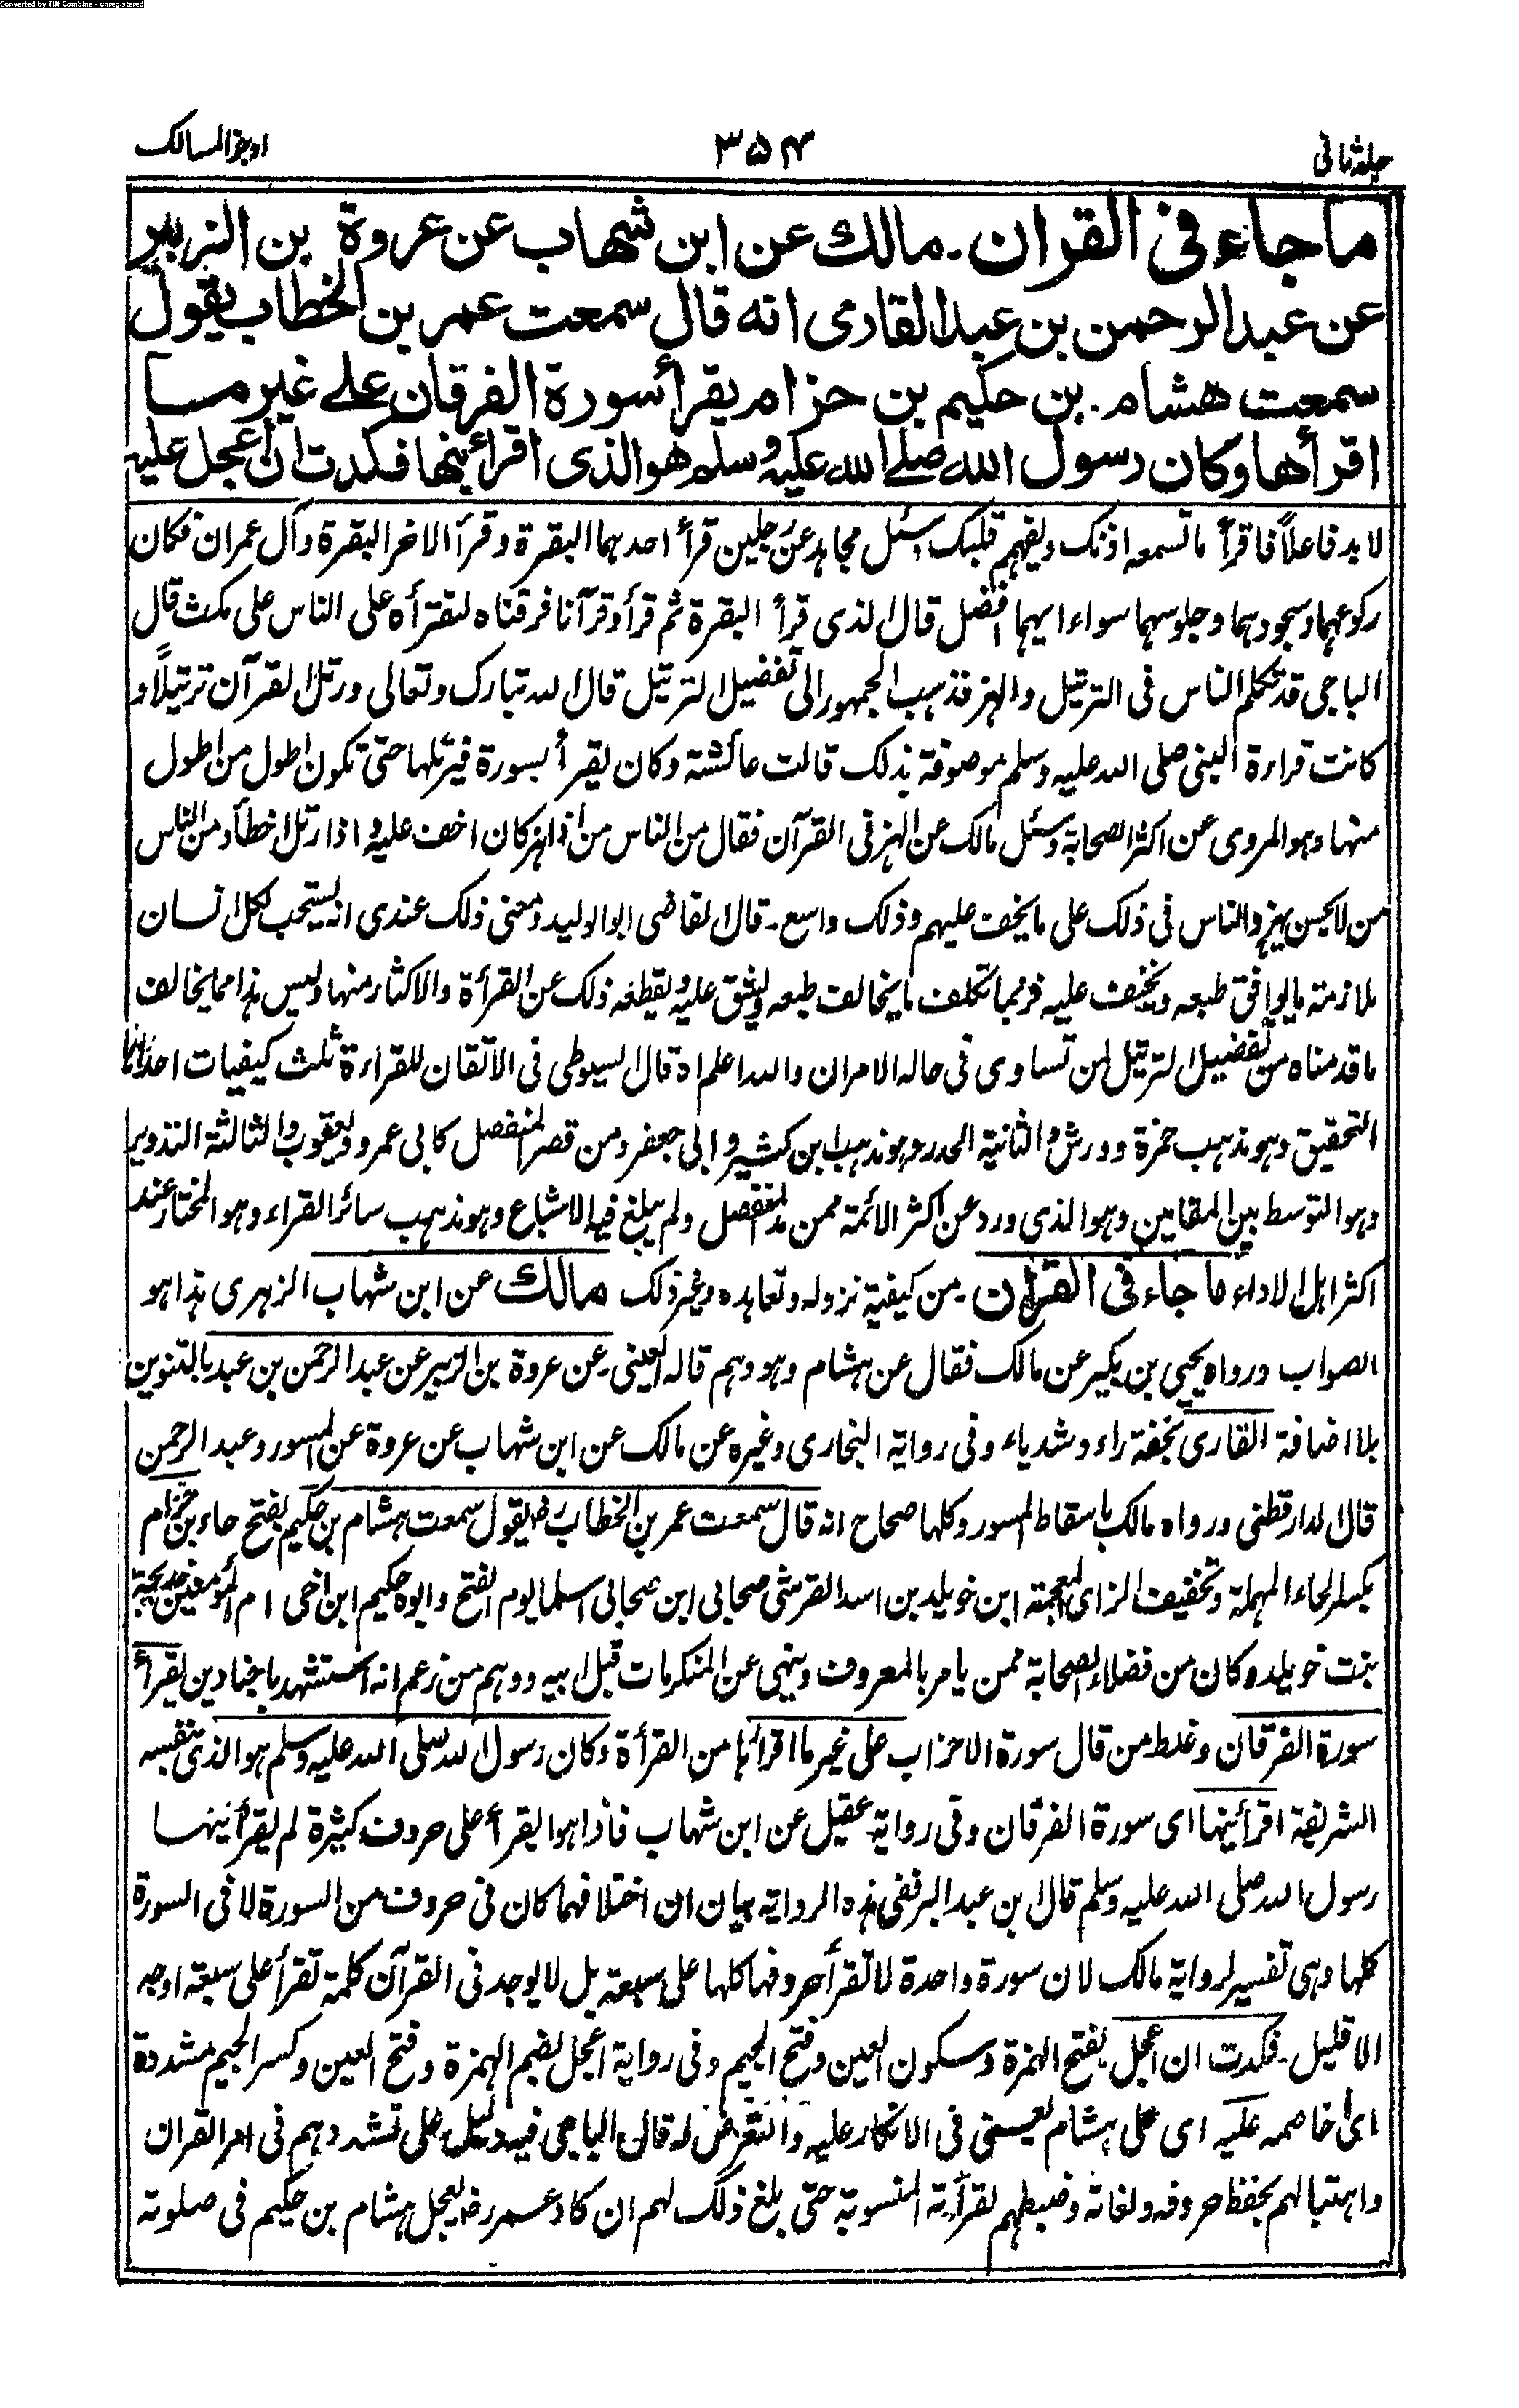 Converted by Tiff Combine - unregistered
جلد ثانی
۳۵۴
اوجز المسالک
ما جاء فی القران ۔ مالك عن ابن شهاب عن عروة بن الزبير
عن عبد الرحمن بن عبد القاری انه قال سمعت عمر بن الخطاب يقول
سمعت هشام بن حكيم بن حزام يقرأ سورة الفرقان علے غير ما
اقرأها وكان رسول الله صلے الله عليه وسلم هو الذی اقرأنيها فكدت ان اعجل عليه
لا بد فاعلاً فاقرأ ما تسمعه اذنک ویفهم قلبک وسئل مجاهد عن رجلین قرأ احدهما البقرة وقرأ الاخر البقرة وآل عمران فکان
رکوعهما وسجودهما وجلوسهما سواء ایهما افضل قال الذی قرأ البقرة ثم قرأ وقرآنا فرقناه لتقرأه علی الناس علی مکث قال
الباجی قد تکلم الناس فی الترتیل والهز فذهب الجمهور الی تفضیل الترتیل قال الله تبارک وتعالی ورتل القرآن ترتیلاً و
کانت قراءة النبی صلی الله علیه وسلم موصوفة بذلک قالت عائشة وکان یقرأ بسورة فیرتلها حتی تکون اطول من اطول
منها وهو المروی عن اکثر الصحابة وسئل مالک عن الهز فی القرآن فقال من الناس من اذا هز کان اخف علیه و اذا رتل اخطأ ومن الناس
من لا یحسن یهز والناس فی ذلک علی ما یخف علیهم وذلک واسع ۔ قال القاضی ابو الولید ومعنی ذلک عندی انه یستحب لکل انسان
ملازمة ما یوافق طبعه ویخف علیه فربما تکلف ما یخالف طبعه ویشق علیه ویقطعه ذلک عن القرأة والاکثار منها ولیس هذا مما یخالف
ما قدمناه من تفضیل الترتیل لمن تساوی فی حاله الامران والله اعلم اه قال السیوطی فی الاتقان للقراءة ثلث کیفیات احداها
التحقیق وهو مذهب حمزة وورش والثانیة الحدر وهو مذهب ابن کثیر وابی جعفر ومن قصر المنفصل کابی عمرو ویعقوب والثالثة التدویر
وهو التوسط بین المقامین وهو الذی ورد عن اکثر الائمة ممن مد المنفصل ولم یبلغ فیه الاشباع وهو مذهب سائر القراء وهو المختار عند
اکثر اهل الاداء ما جاء فی القرآن ۔ من کیفیة نزوله وتعاهده وغیر ذلک مالك عن ابن شهاب الزهری هذا هو
الصواب ورواه یحیی بن بکیر عن مالک فقال عن هشام وهو وهم قاله العینی ۔ عن عروة بن الزبیر عن عبد الرحمن بن عبد بالتنوین
بلا اضافة القاری بخفة راء وشد یاء وفی روایة البخاری وغیره عن مالک عن ابن شهاب عن عروة عن المسور وعبد الرحمن
قال الدارقطنی ورواه مالک باسقاط المسور وکلها صحاح انه قال سمعت عمر بن الخطاب رضـ یقول سمعت هشام بن حکیم بفتح حاء بن حزام
بکسر الحاء المهملة وتخفیف الزای المعجمة ابن خویلد بن اسد القرشی صحابی ابن صحابی اسلما یوم الفتح وابوه حکیم ابن اخی ام المؤمنین خدیجة
بنت خویلد وکان من فضلاء الصحابة ممن یامر بالمعروف وینهی عن المنکر مات قبل ابیه ووهم من زعم انه استشهد باجنادین یقرأ
سورة الفرقان وغلط من قال سورة الاحزاب علی غیر ما اقرأها من القرأة وکان رسول الله صلی الله علیه وسلم هو الذی بنفسه
الشریفة اقرأنیها ای سورة الفرقان وفی روایة عقیل عن ابن شهاب فاذا هو یقرأ علی حروف کثیرة لم یقرأنیها
رسول الله صلی الله علیه وسلم قال ابن عبد البر ففی هذه الروایة بیان ان اختلافهما کان فی حروف من السورة لا فی السورة
کلها وهی تفسیر لروایة مالک لان سورة واحدة لا تقرأ حروفها کلها علی سبعة بل لا یوجد فی القرآن کلمة تقرأ علی سبعة اوجه
الا قلیل ۔ فکدت ان اعجل بفتح الهمزة وسکون العین وفتح الجیم وفی روایة اعجل بضم الهمزة وفتح العین وکسر الجیم مشددة
ای اخاصمه علیه ای علی هشام یعنی فی الانکار علیه والتعرض له قال الباجی فیه دلیل علی تشددهم فی امر القران
واهتبالهم بحفظ حروفه ولغاته وضبطهم لقرأته المنسوبة حتی بلغ ذلک لهم ان کاد عمر رضـ یعجل هشام بن حکیم فی صلوته